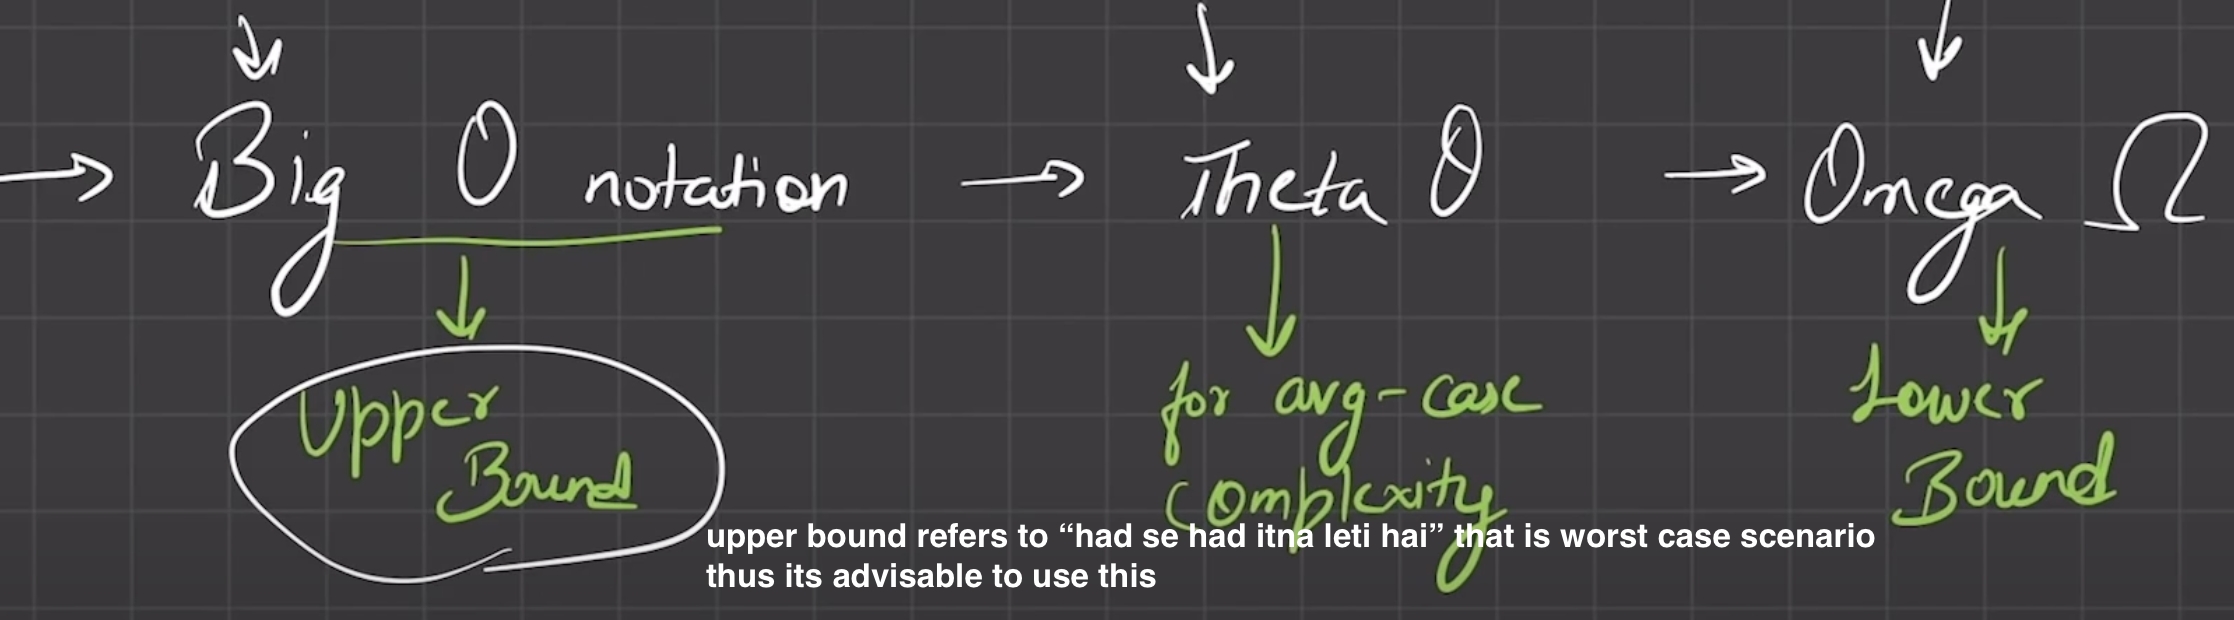 Big O notation
Theta θ
Omega Ω
Upper
Bound
for avg-case
complexity
Lower
Bound
upper bound refers to “had se had itna leti hai” that is worst case scenario
thus its advisable to use this